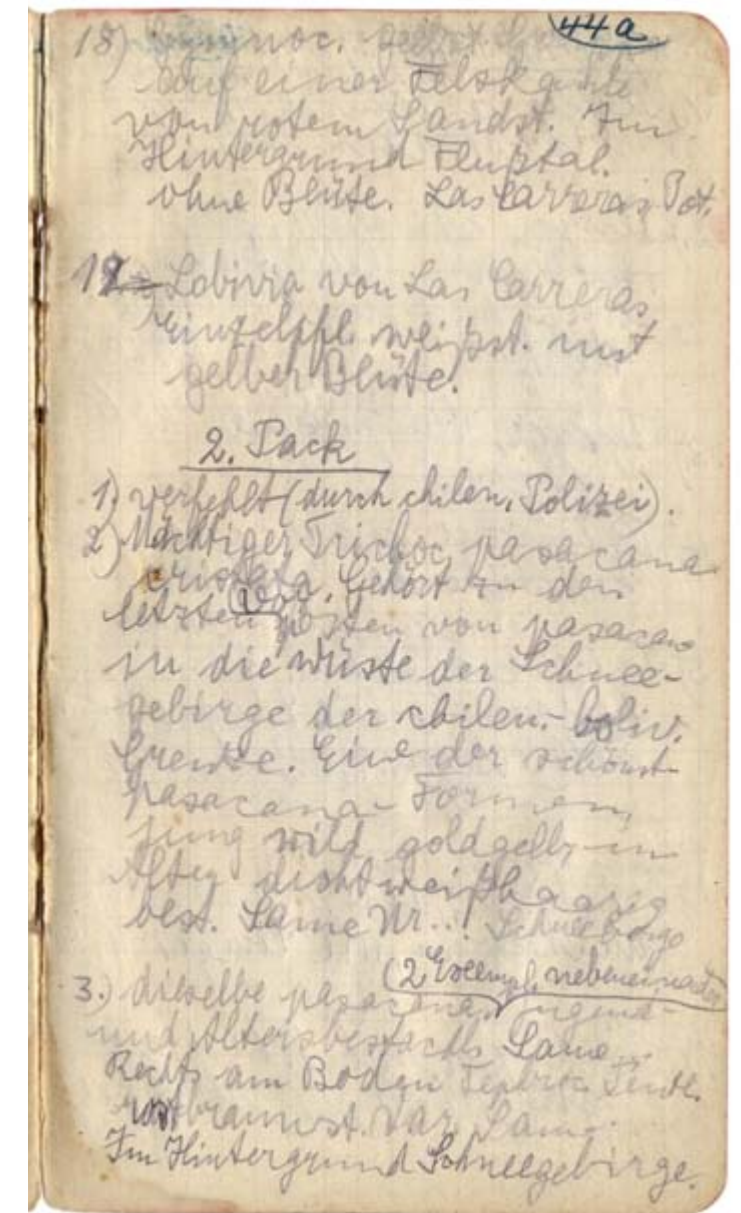 44a
18)
auf einer Felskante
von rotem Sandst. Im
Hintergrund Flußtal.
ohne Blüte. Las Carreras, Bol.
19 Lobivia von Las Carreras,
Einzelpfl. weißst. mit
gelber Blüte.
2. Pack
1) verfehlt (durch chilen. Polizei).
2) Mächtiger Trichoc. pasacana
cristata. Gehört zu den
letzten Vorposten von pasacana
in die Wüste der Schnee-
gebirge der chilen.-boliv.
Grenze. Eine der schönst.
pasacana-Formen,
jung wild goldgelb, im
Alter dicht weißhaarig
best. Same Nr..! Schneeberge
(2 Exempl. nebeneinander)
3.) dieselbe pasacana, Jugend-
und Same
Rechts am Boden
rostbraunst. Var. Same.
Im Hintergrund Schneegebirge.